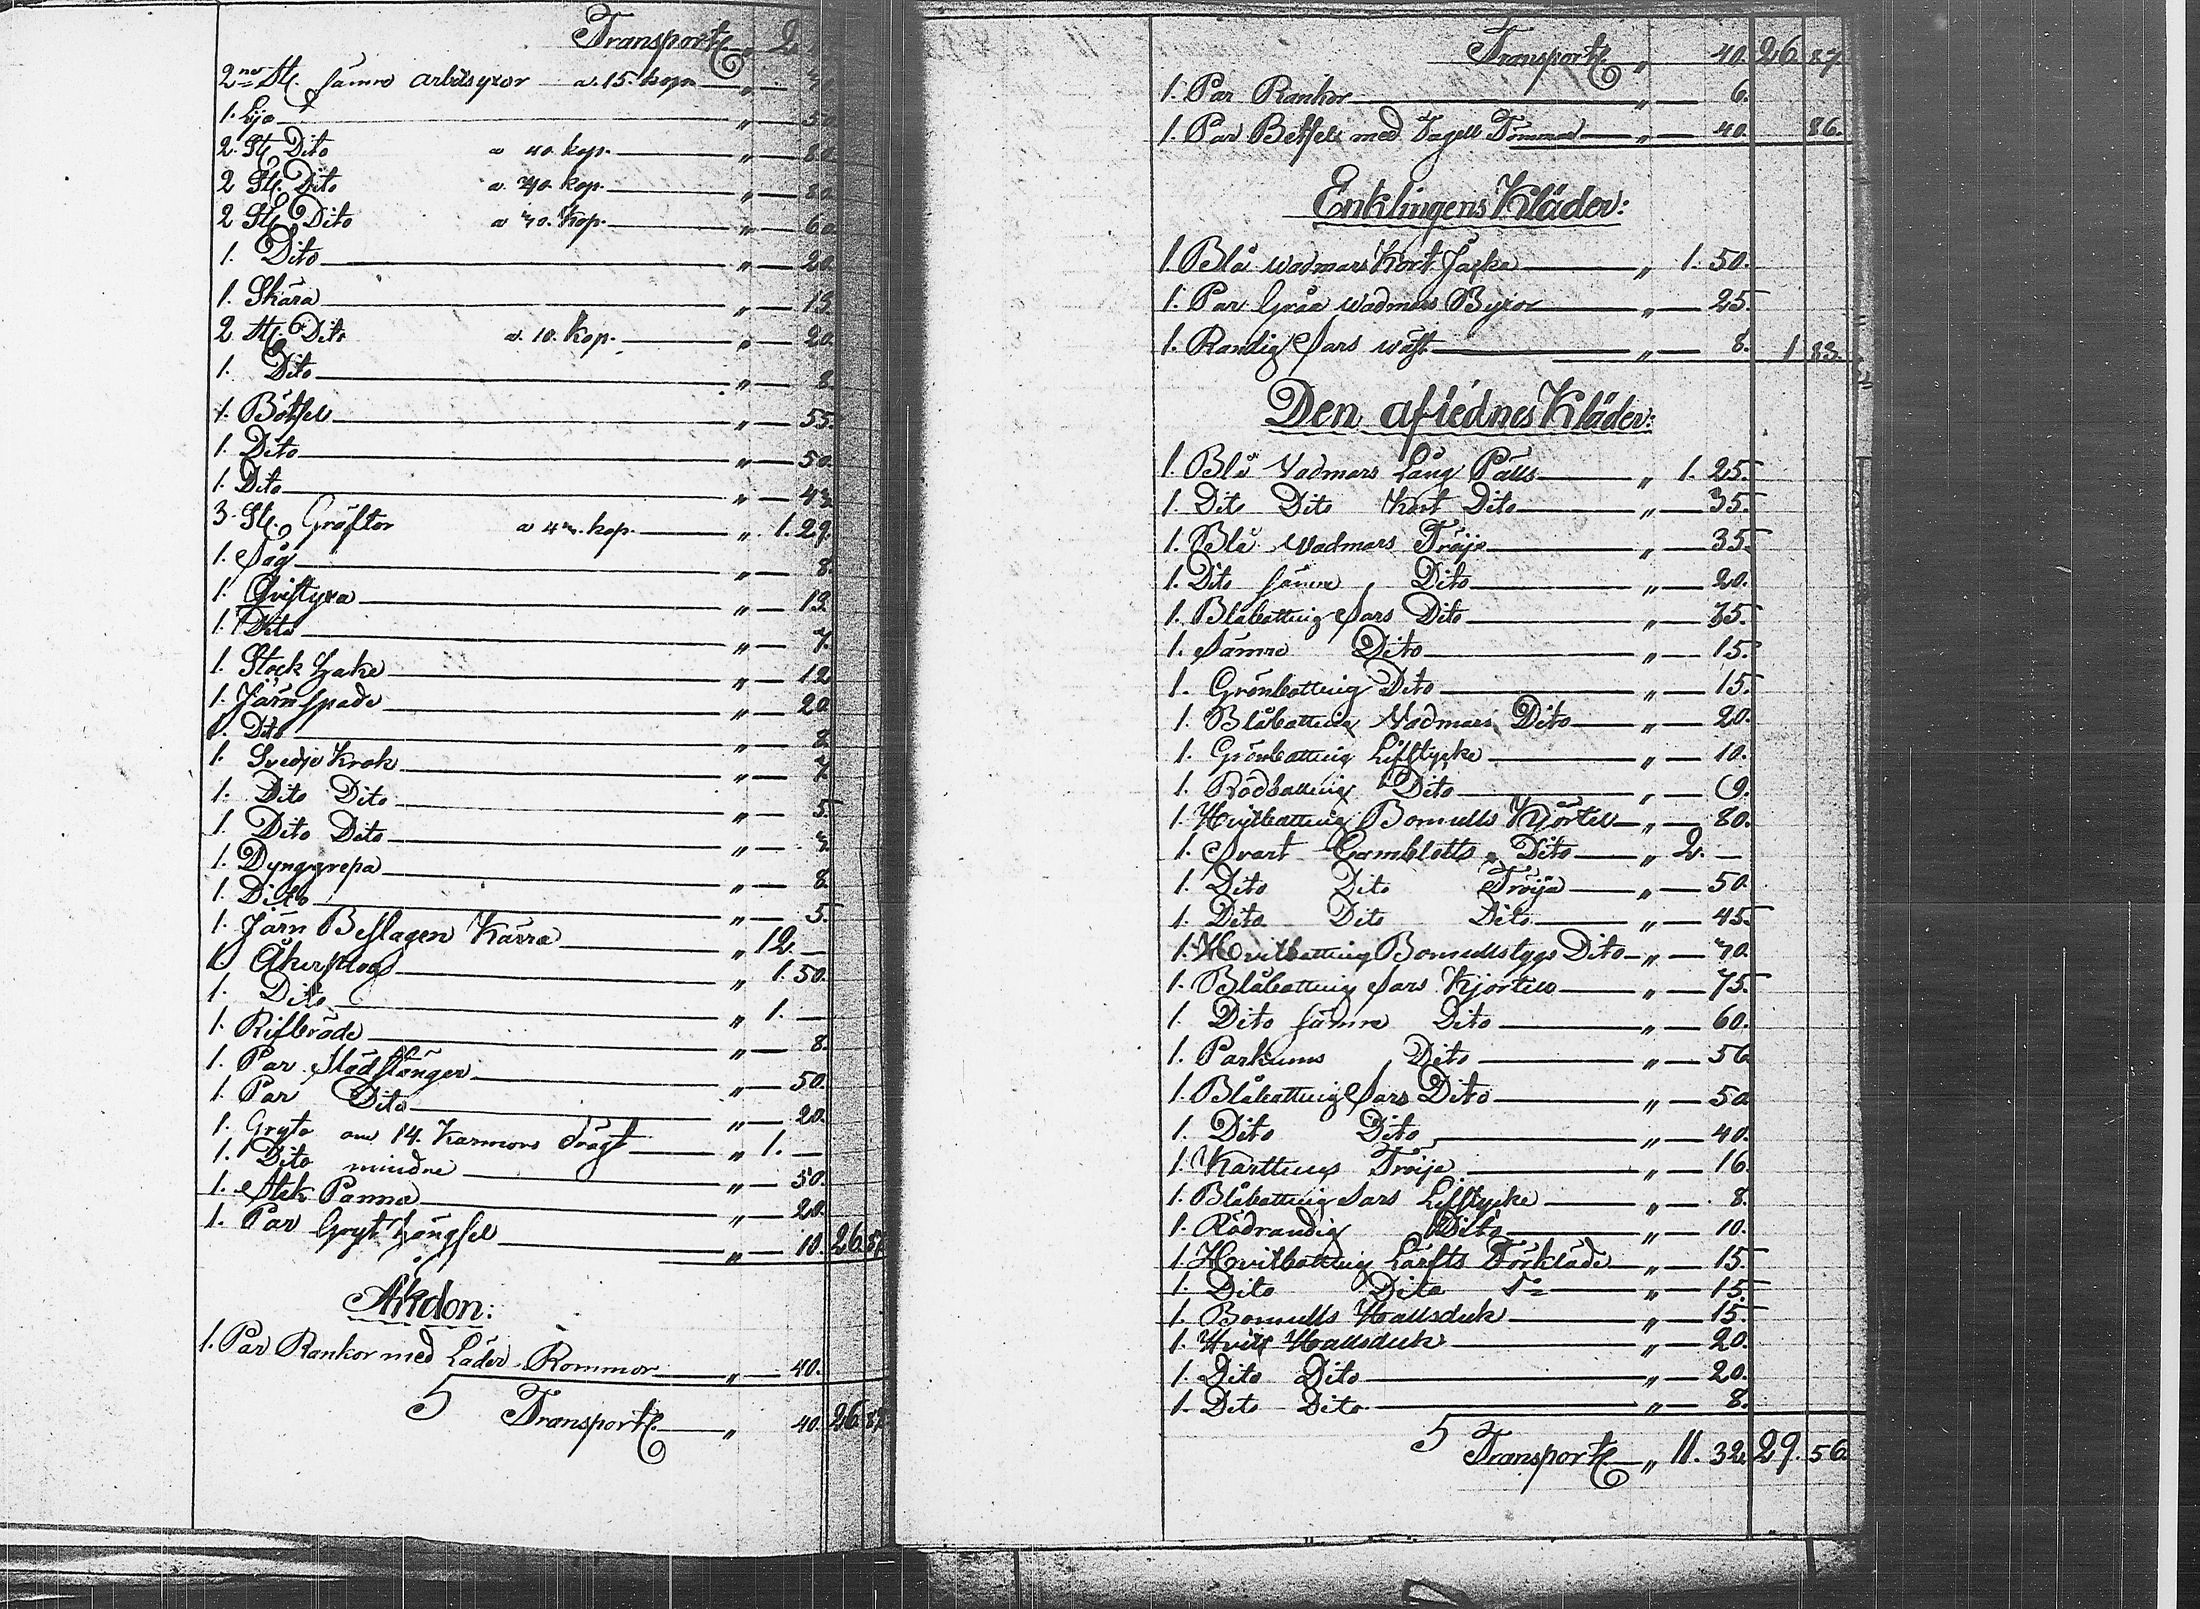 Transport „ 2.
2ne St. sämre arbetsyxor a 15. kop. „ —
1. Lja „ — 50
2. St. Dito a 40. kop. „ — 80
2 St. Dito a 40. kop. „ — 80
2 St. Dito a 30. Kop. „ — 60
1. Dito „ — 20.
1. Skära „ — 13
2 St. Dito a. 10. Kop. „ — 20
1. Dito „ — 8
1. Bötsel „ — 55.
1. Dito „ — 50.
1. Dito „ — 43
3. St. Gräftor a 43. kop. „ 1. 29.
1. Såg „ — 8.
1. Qvistyxa „ — 13
1. Dito „ — 7.
1. Stock hake „ — 12
1. Järnspade „ — 20
1. Dito „ — 8
1. Svedje Krok „ — 7.
1. Dito Dito „ — 5.
1. Dito Dito „ — 3.
1. Dynggrepa „ — 8.
1. Dito „ — 5.
1. Järn Beslagen Kärra „ 12 —
1. Åkerplog „ 1. 50.
1. Dito „ 1. —
1. Rifbräde „ — 8.
1. Par Slädstänger „ — 50.
1. Par Dito „ — 20.
1. Gryta om 14. Kannors drägt „ 1. —
1. Dito mindre „ — 50.
1. Stek Panna „ — 20.
1. Par Gryt hängsel „ — 10. 26. 87
Åkdon:
1. Par Rankor med Läder Rommor „ — 40.
5 Transport „ 40. 26. 87
Transport „ 40. 26. 87
1. Par Rankor „ — 6.
1. Par Betsel med Tagell Tömmar „ — 40. 86.
Enklingens Kläder:
1. Blå wadmars Kort Jacka „ 1. 50.
1. Par Gråa wadmars Byxor „ — 25.
1. Randig Sars wäst „ — 8. 1 83.
Den aflednes Kläder:
1. Blå Vadmars Lång Pälls „ 1. 25.
1. Dito Dito Kort Dito „ — 35.
1. Blå Vadmars Tröja „ — 35.
1. Dito sämre Dito „ — 20.
1. Blåbottnig Sars Dito „ — 35.
1. Sämre Dito „ — 15.
1. Grönbottnig Dito „ — 15.
1. Blåbottnig Vadmars Dito „ — 20.
1. Grönbottnig Lifstycke „ — 10.
1. Rödbottnig Dito „ — 9.
1. Hvitbottnig Bomulls Kjortel „ — 80.
1. Svart Camblotts Dito „ 2. —
1. Dito Dito Tröija „ — 50
1. Dito Dito Dito „ — 45
1. Hvitbottnig Bomullstygs Dito „ — 30.
1. Blåbottnig Sars Kjortel „ — 75.
1. Dito sämre Dito „ — 60.
1. Parkums Dito „ — 56
1. Blåbottnig Sars Dito „ — 50
1. Dito Dito „ — 40.
1. Karttuns Tröija „ — 16.
1. Blåbottnig Sars Lifstycke „ — 8.
1. Rödrandig Dito „ — 10.
1. Hvitbottnig Lärfts Förkläde „ — 15.
1. Dito Dito Do „ — 15.
1. Bomulls Hallsduk „ — 15.
1. Hvit Hallsduk „ — 20.
1. Dito Dito „ — 20.
1. Dito Dito „ — 8.
5 Transport „ 11. 32. 29. 56.